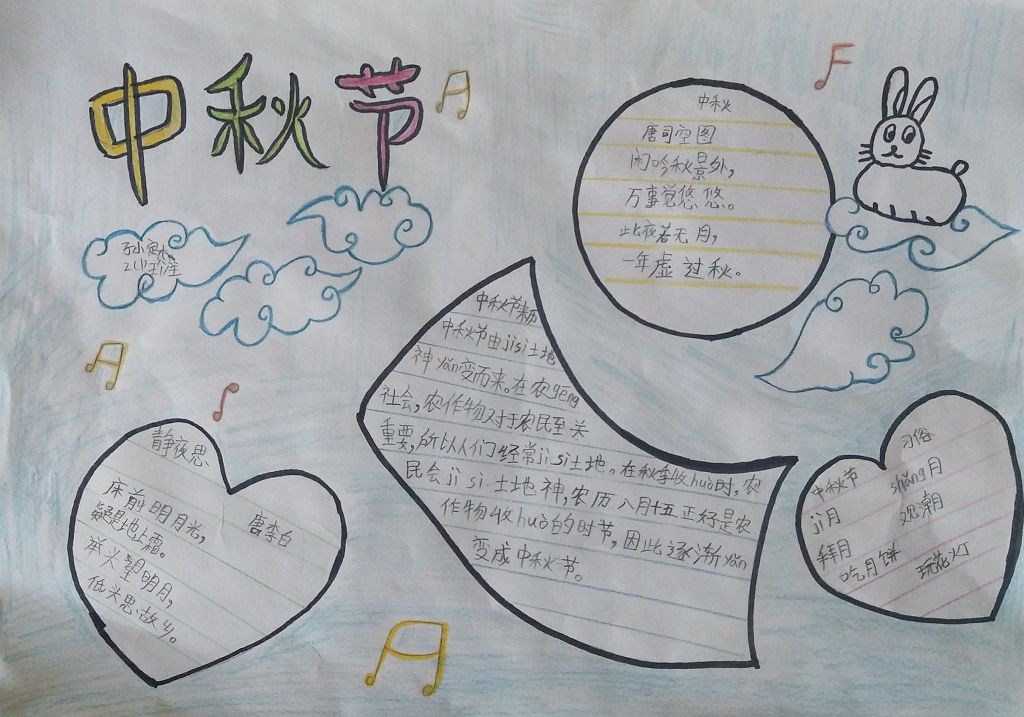 中秋节
中秋
唐司空图
闲吟秋景外，
万事觉悠悠。
此夜若无月，
一年虚过秋。
中秋节来历
中秋节由jisi土地
神yǎn变而来。在农gēng
社会，农作物对于农民至关
重要，所以人们经常jisi土地。在秋季收huò时，农
民会ji si土地神，农历八月十五正好是农
作物收huò的时节，因此逐渐yǎn
变成中秋节。
静夜思
唐李白
床前明月光，
疑是地上霜。
举头望明月，
低头思故乡。
习俗
中秋节
shǎng月
ji月
观潮
拜月
吃月饼
玩花灯